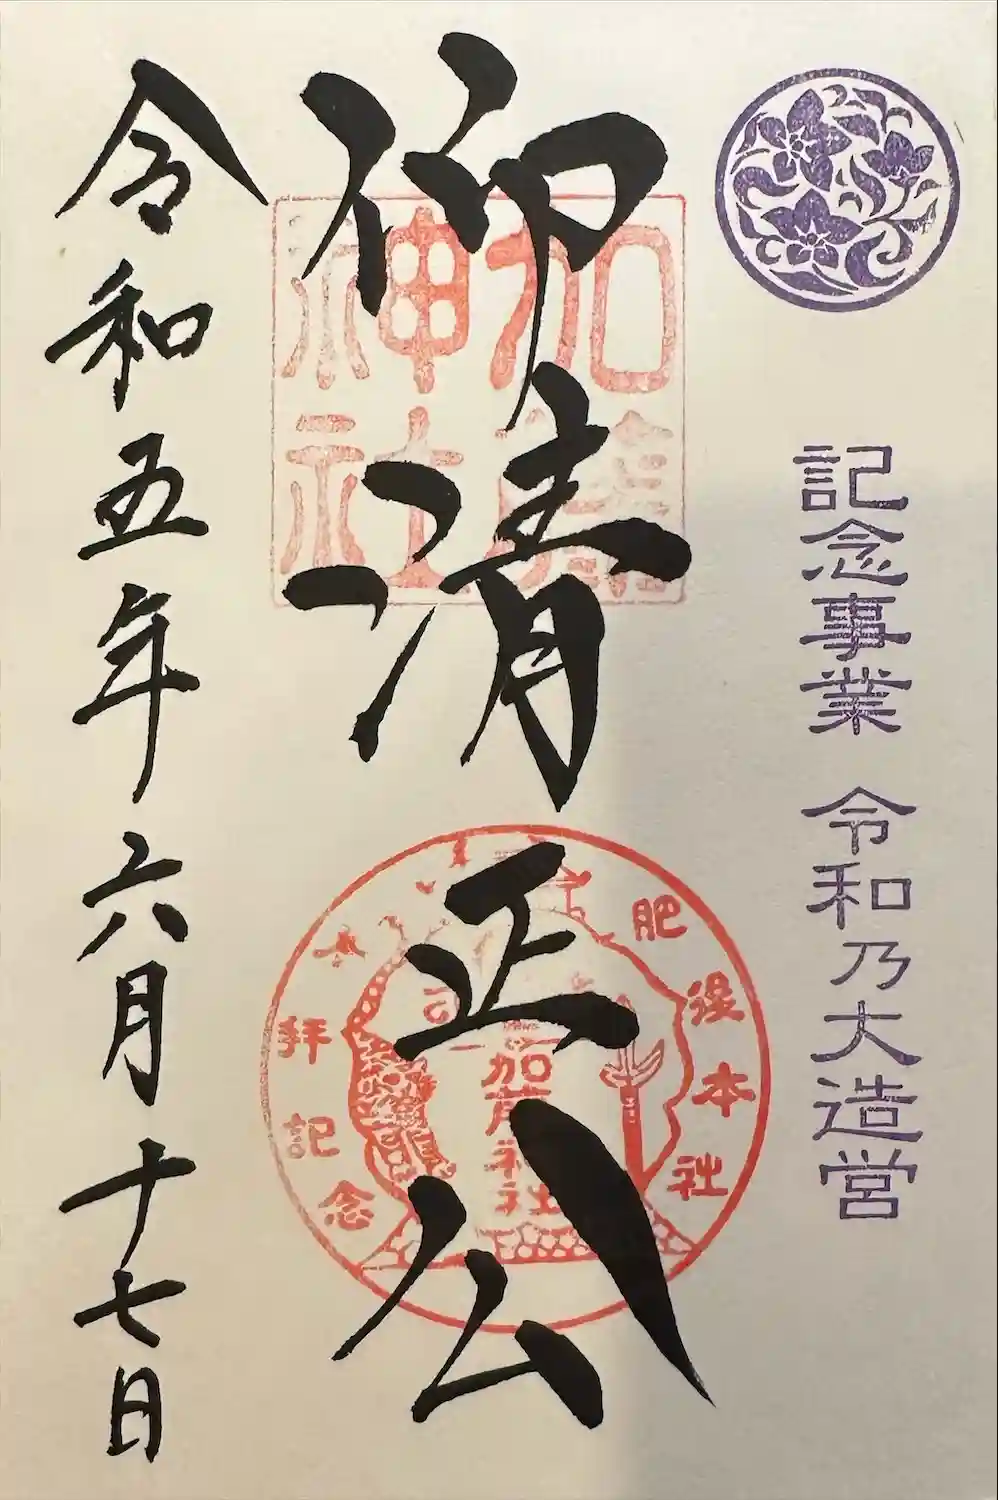 記念事業 令和乃大造営
仰清正公
加藤神社
肥後本社
参拝記念
加藤神社
令和五年六月十七日